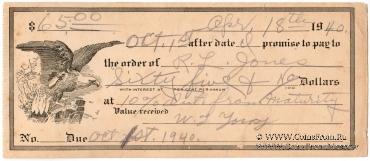 $65.00 Apr 18th 1940.
Oct. 1st after date I promise to pay to
the order of R. L. Jones
Sixty five & no Dollars
WITH INTEREST AT PER CENT PER ANNUM
at 10% int from maturity
Value received
W. T.
No. Due Oct 1st 1940.
www.CoinsFrom.Ru